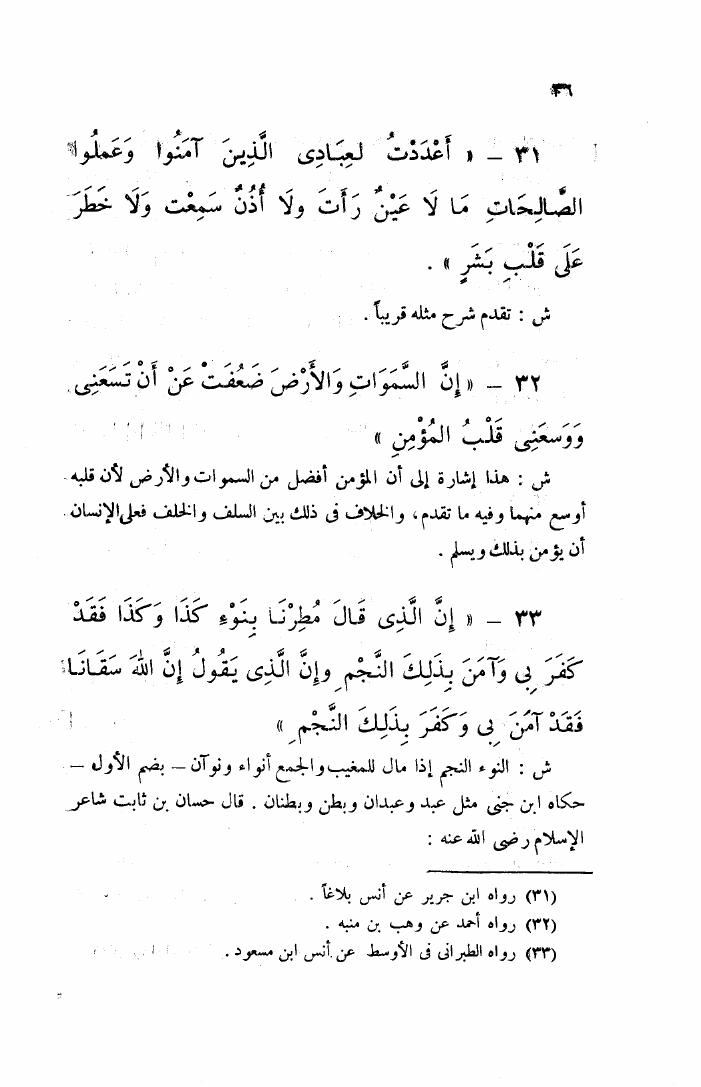 ٣٦
٣١ – « أَعْدَدْتُ لِعِبَادِى الَّذِينَ آمَنُوا وَعَمِلُوا
الصَّالِحَاتِ مَا لَا عَيْنٌ رَأَتَ ولَا أُذُنٌ سَمِعْت وَلَا خَطَرَ
عَلَى قَلْبِ بَشَرٍ » .
ش : تقدم شرح مثله قريباً .
٣٢ – « إِنَّ السَّمَوَاتِ وَالأَرْضَ ضَعُفَتْ عَنْ أَنْ تَسَعَنِى
وَوَسِعَنِى قَلْبُ المُؤْمِنِ »
ش : هذا إشارة إلى أن المؤمن أفضل من السموات والأرض لأن قلبه
أوسع منهما وفيه ما تقدم ، والخلاف فى ذلك بين السلف والخلف فعلى الإنسان
أن يؤمن بذلك ويسلم .
٣٣ – « إِنَّ الَّذِى قَالَ مُطِرْنَا بِنَوْءِ كَذَا وَكَذَا فَقَدْ
كَفَرَ بِى وَآمَنَ بِذَلِكَ النَّجْمِ وإِنَّ الَّذِى يَقُولُ إِنَّ اللهَ سَقَانَا
فَقَدْ آمَنَ بِى وَكَفَرَ بِذَلِكَ النَّجْمِ »
ش : النوء النجم إذا مال للمغيب والجمع أنواء ونوآن – بضم الأول –
حكاه ابن جنى مثل عبد وعبدان وبطن وبطنان . قال حسان بن ثابت شاعر
الإسلام رضى الله عنه :
(٣١) رواه ابن جرير عن أنس بلاغاً .
(٣٢) رواه أحمد عن وهب بن منبه .
(٣٣) رواه الطبرانى فى الأوسط عن أنس ابن مسعود .